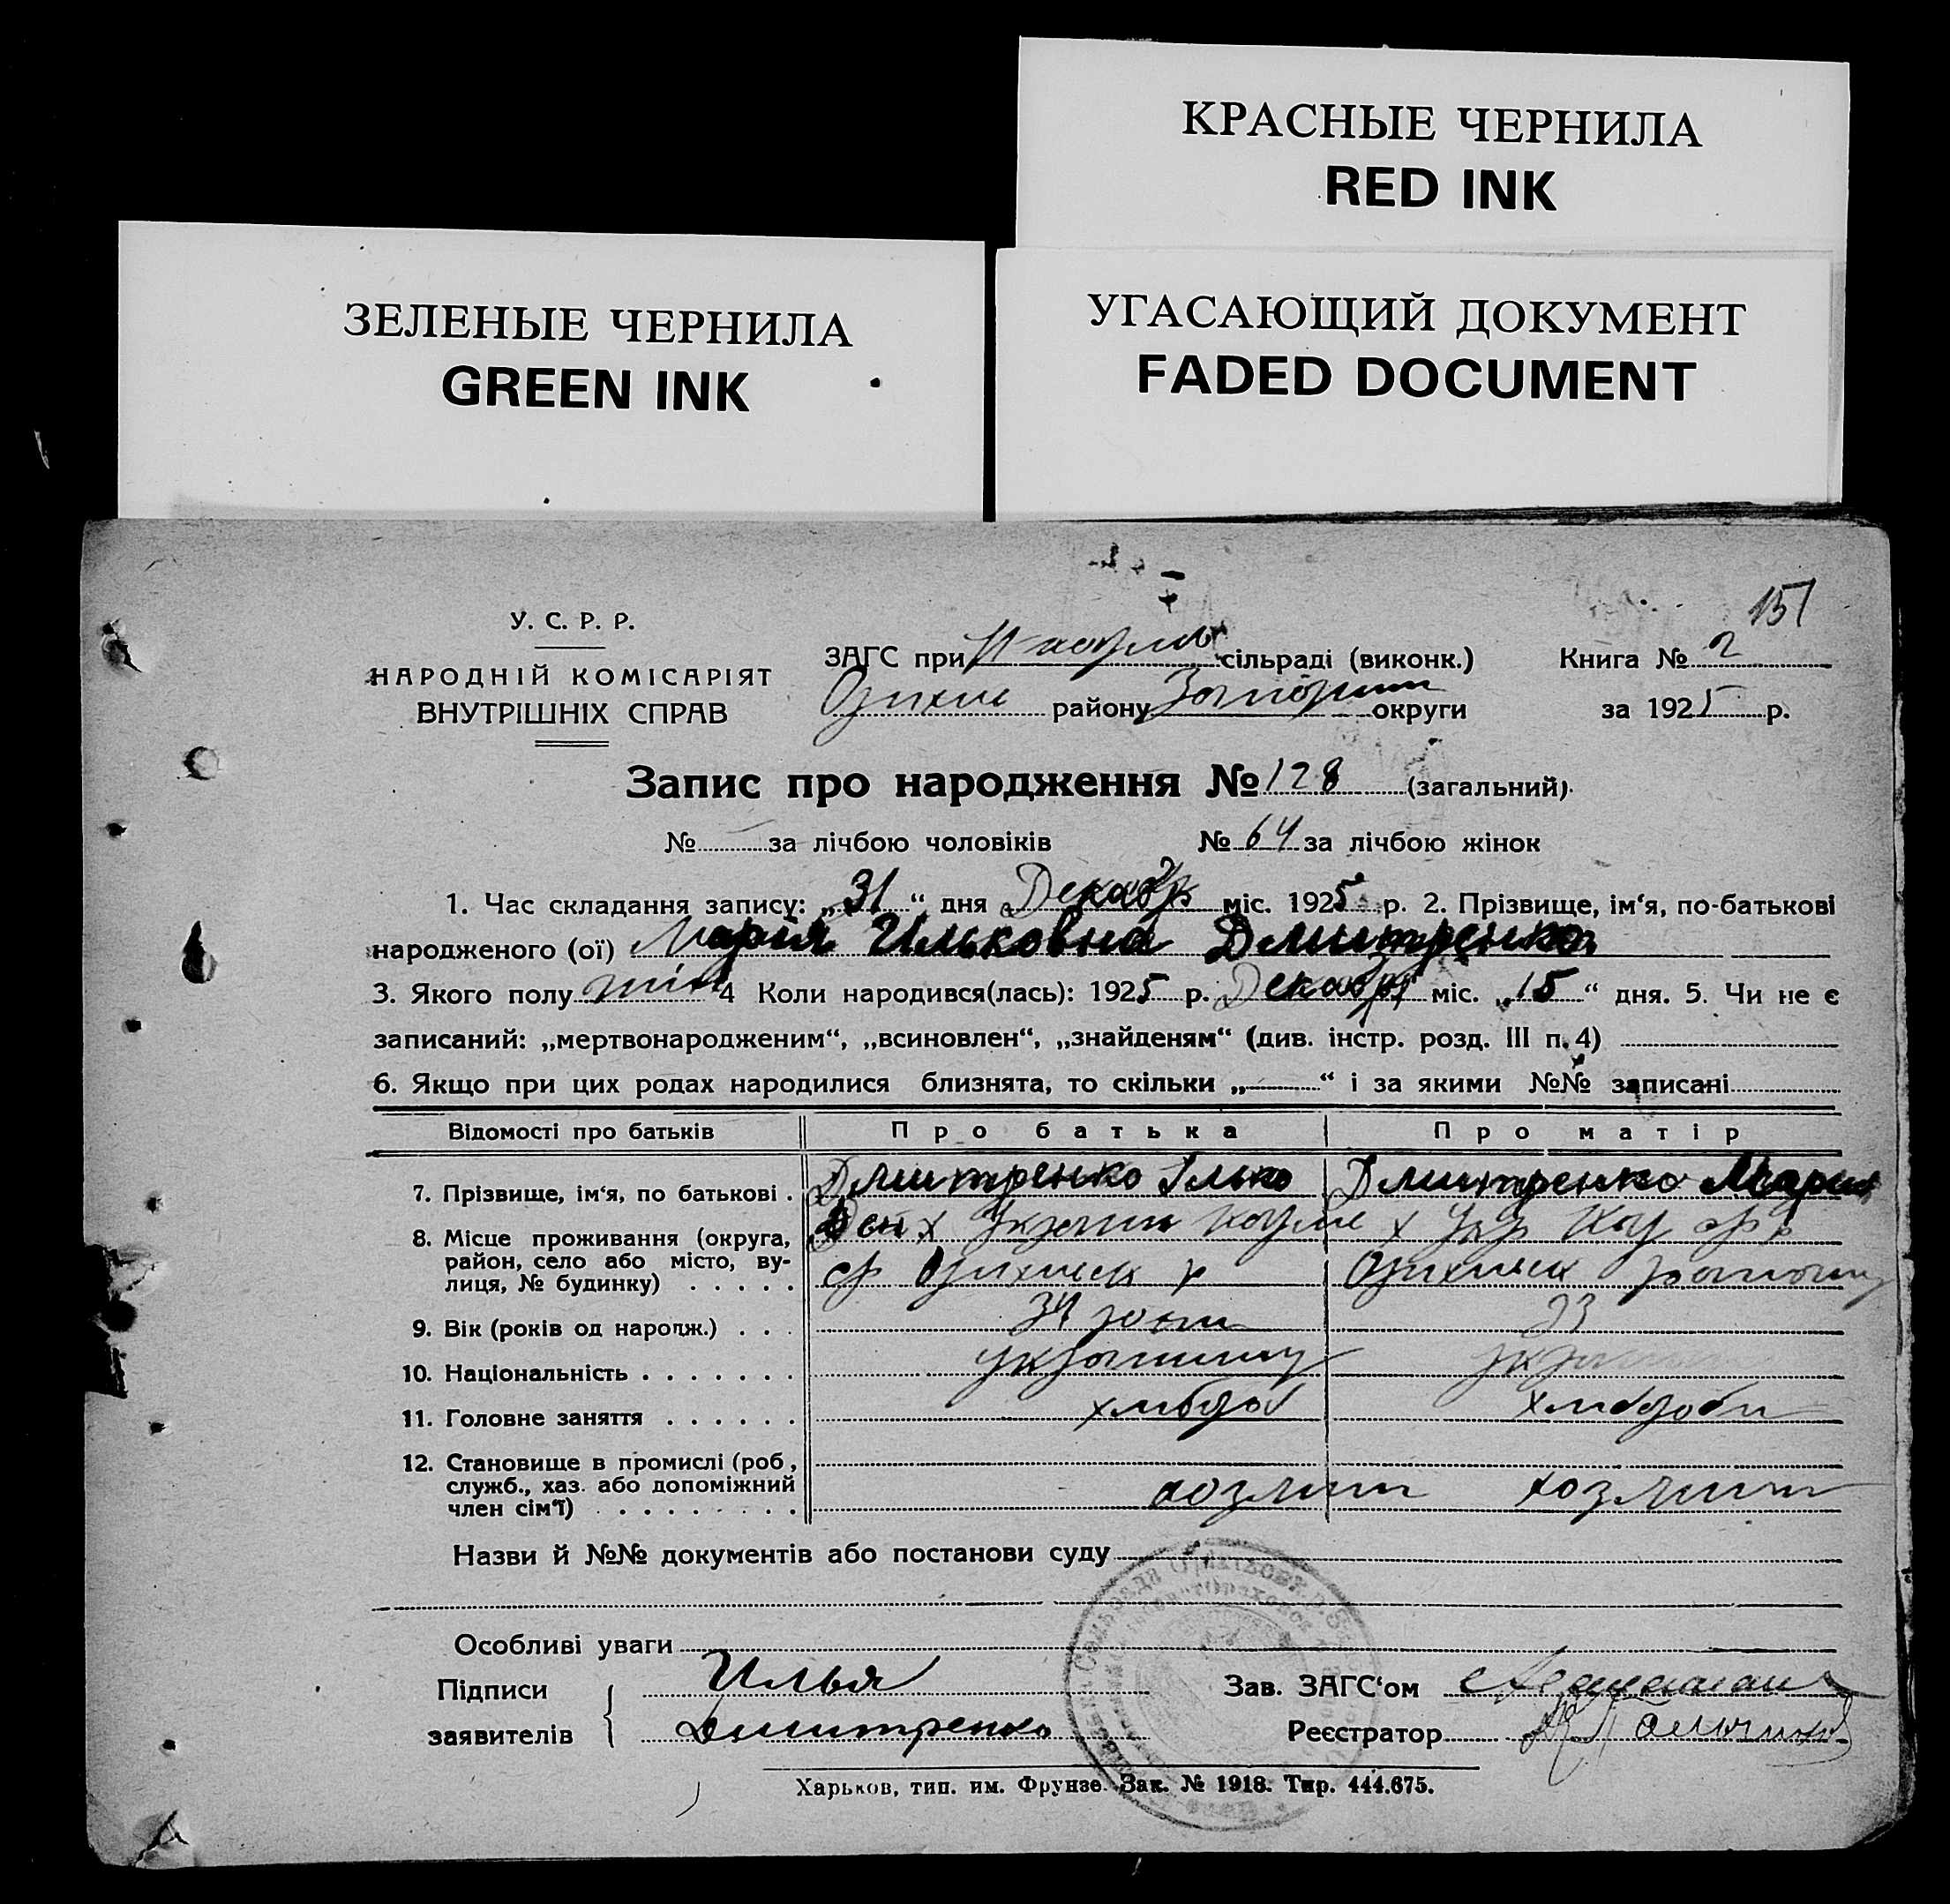 КРАСНЫЕ ЧЕРНИЛА
RED INK
ЗЕЛЕНЫЕ ЧЕРНИЛА
GREEN INK
УГАСАЮЩИЙ ДОКУМЕНТ
FADED DOCUMENT
151
У. С. Р. Р.
НАРОДНІЙ КОМІСАРІЯТ
ВНУТРІШНІХ СПРАВ
ЗАГС при сільраді (виконк.)
Оріхів району Запоріж округи
Книга № 2
за 1925 р.
Запис про народження № 128 (загальний)
№ за лічбою чоловіків № 64 за лічбою жінок
1. Час складання запису: „31“ дня Декабр міс. 1925 р. 2. Прізвище, ім‘я, по-батькові
народженого (ої) Марія Ильковна Дмитренко
3. Якого полу жін 4 Коли народився(лась): 1925 р. Декабря міс. „15“ дня. 5. Чи не є
записаний: „мертвонародженим“, „всиновлен“, „знайденям“ (див. інстр. розд. III п. 4)
6. Якщо при цих родах народилися близнята, то скільки „—“ і за якими №№ записані
Відомості про батьків Про батька Про матір
7. Прізвище, ім‘я, по батькові . Дмитренко Ілько Дмитренко Мария
8. Місце проживання (округа,
район, село або місто, ву-
лиця, № будинку) . . . . .
9. Вік (років од народж.) . . . 34 23
10. Національність . . . . . . .
11. Головне заняття . . . . . . хлібороб хлібороби
12. Становище в промислі (роб.,
служб., хаз. або допоміжний
член сім‘ї) . . . . . . . . хозяин хозяин
Назви й №№ документів або постанови суду
Особливі уваги
Підписи Илья
заявителів Дмитренко
Зав. ЗАГС‘ом
Реєстратор
Харьков, тип. им. Фрунзе. Зак. № 1918. Тир. 444.675.